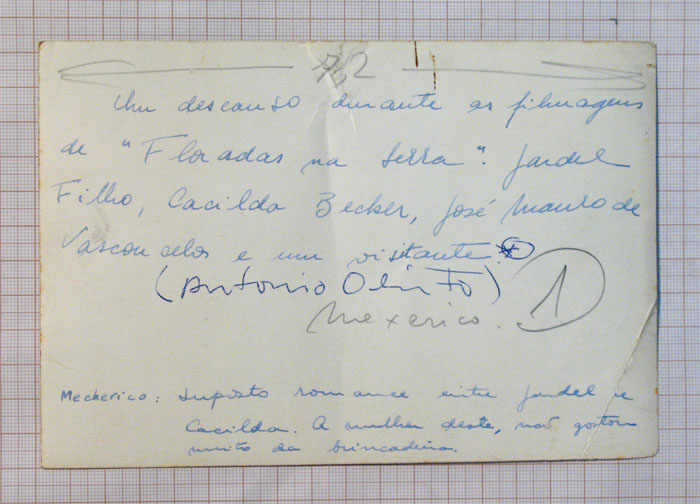 7,2
Um descanso durante as filmagens
de "Floradas na Serra". Jardel
Filho, Cacilda Becker, José Mauro de
Vasconcelos e um visitante.
(Antonio Olinto)
Mexerico. 1
Mecherico: Suposto romance entre Jardel e
Cacilda. A mulher deste, não gostou
muito da brincadeira.